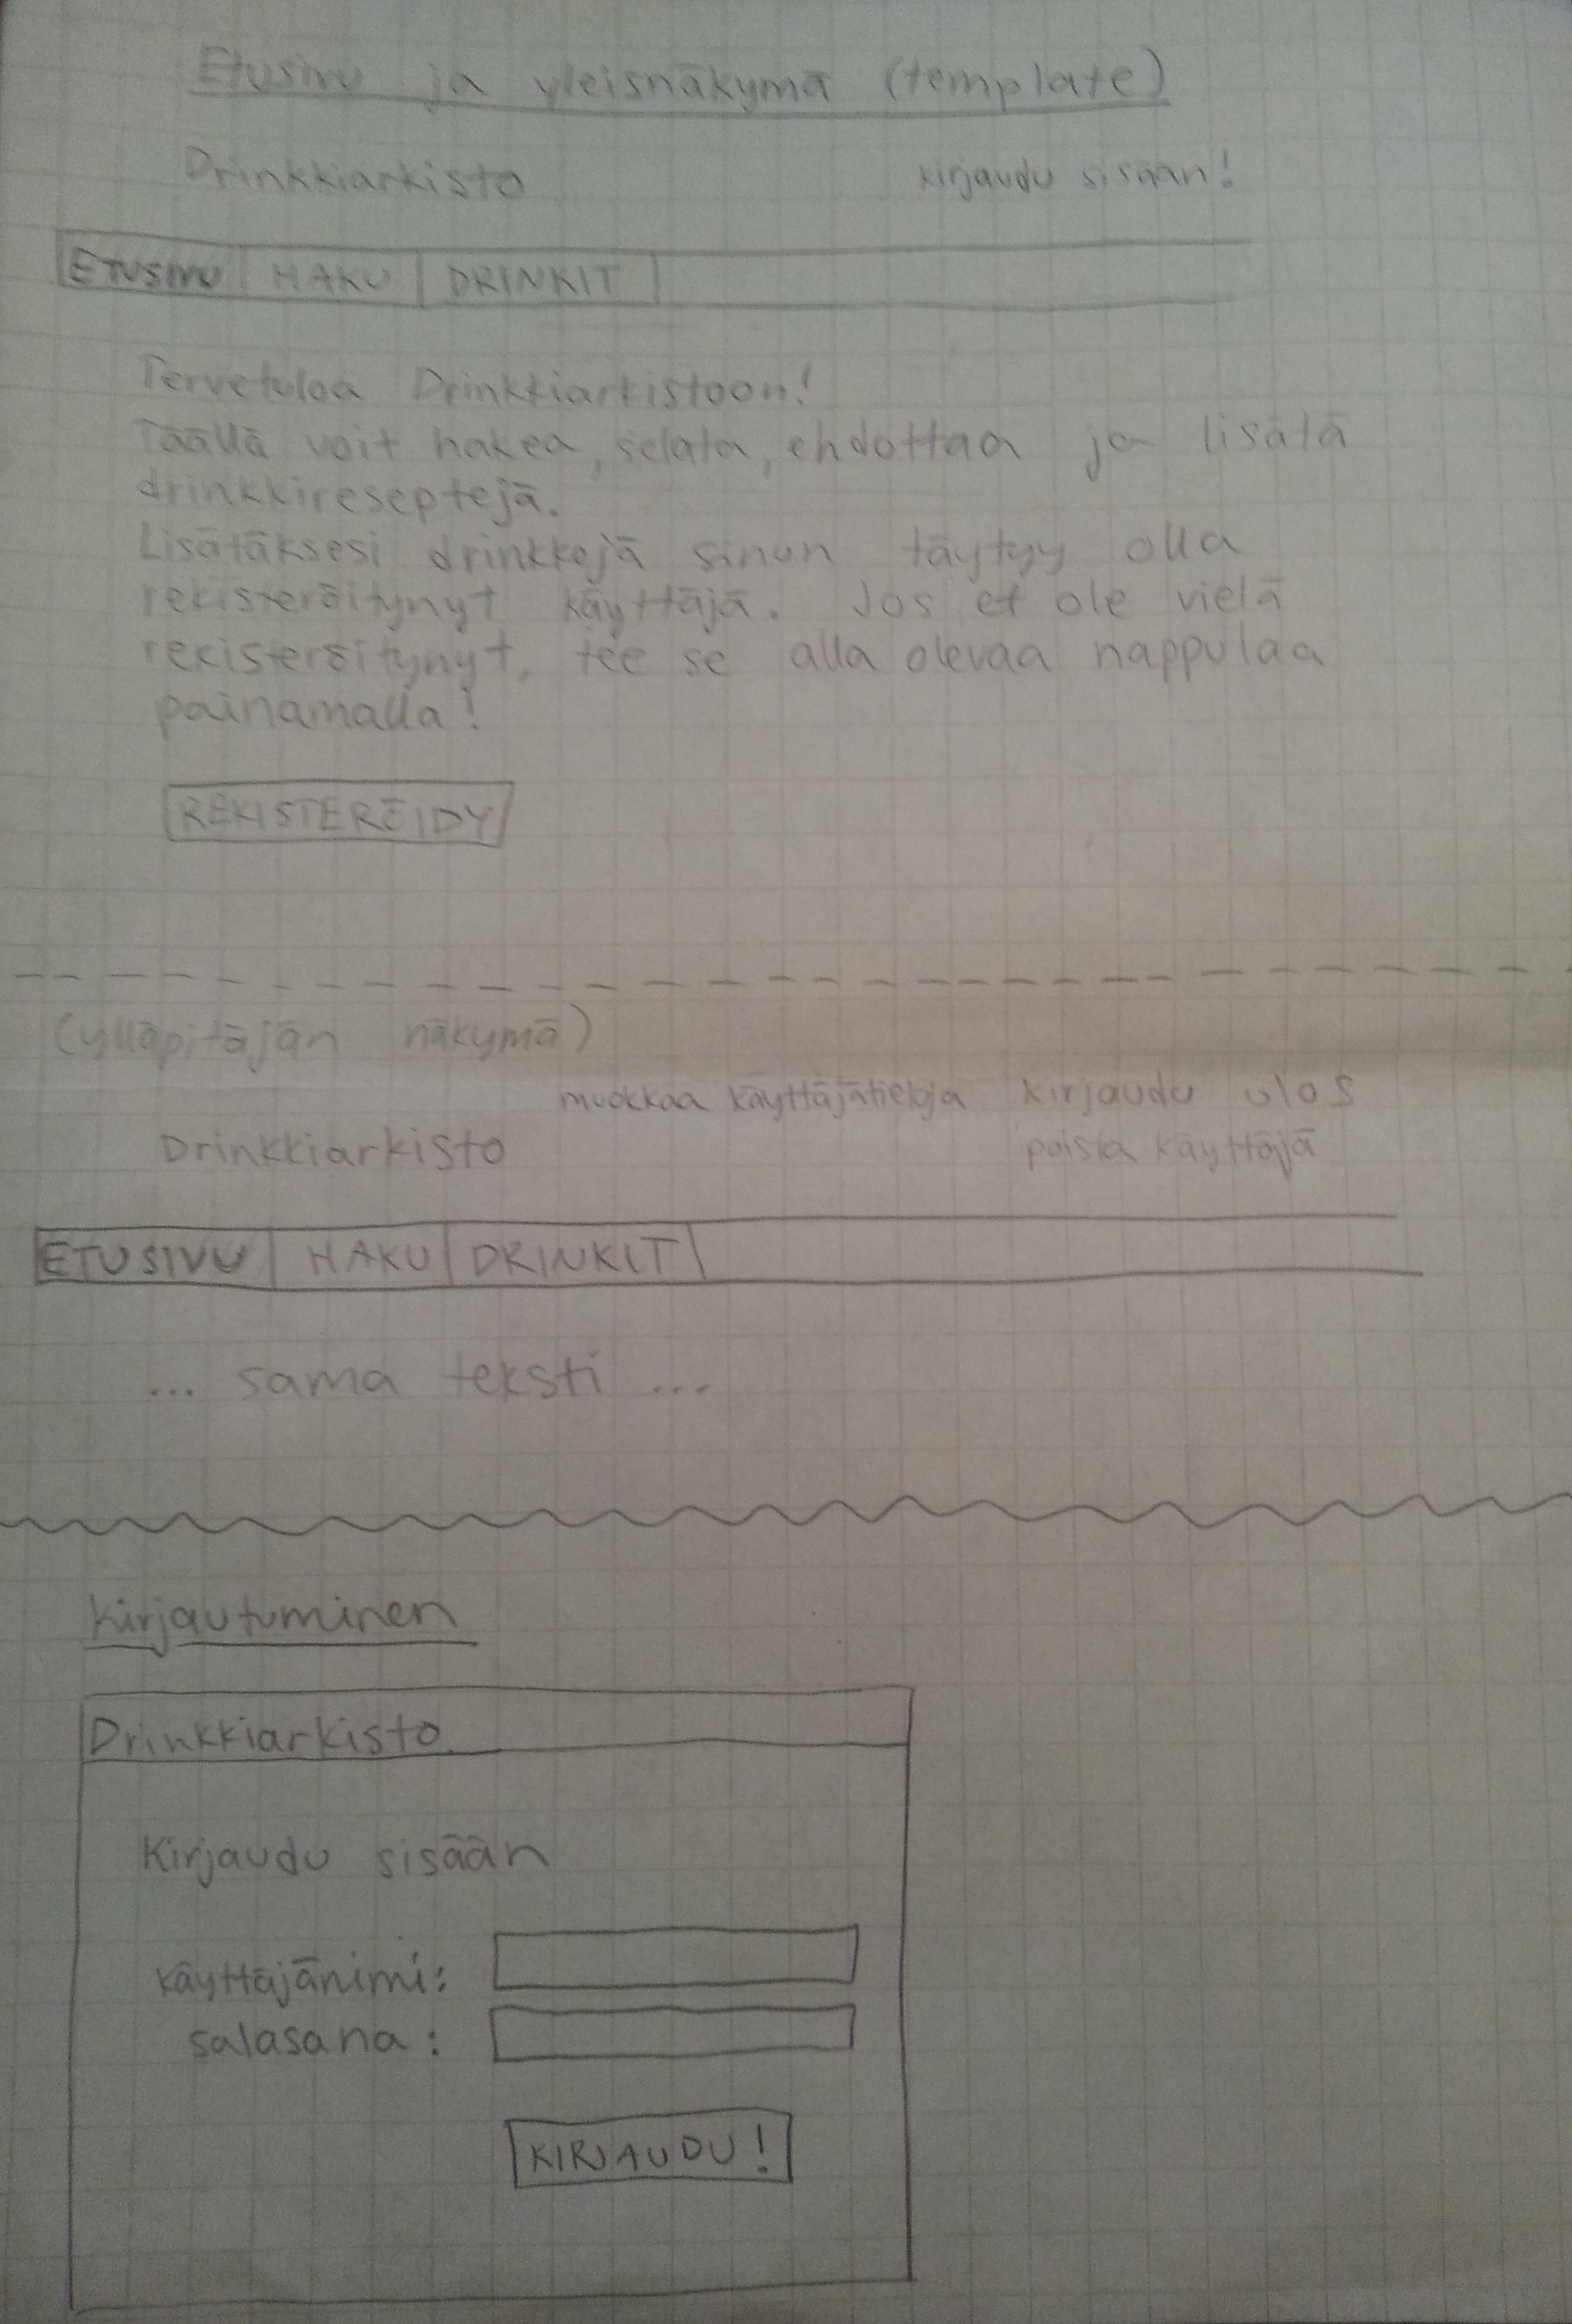 Etusivu ja yleisnäkymä (template)
Drinkkiarkisto kirjaudu sisään!
ETUSIVU | HAKU | DRINKIT |
Tervetuloa Drinkkiarkistoon!
Täällä voit hakea, selata, ehdottaa ja lisätä
drinkkireseptejä.
Lisätäksesi drinkkejä sinun täytyy olla
rekisteröitynyt käyttäjä. Jos et ole vielä
rekisteröitynyt, tee se alla olevaa nappulaa
painamalla!
REKISTERÖIDY
(ylläpitäjän näkymä)
muokkaa käyttäjätietoja kirjaudu ulos
Drinkkiarkisto poista käyttäjä
ETUSIVU | HAKU | DRINKIT |
... sama teksti ...
Kirjautuminen
Drinkkiarkisto
Kirjaudu sisään
käyttäjänimi:
salasana:
KIRJAUDU!